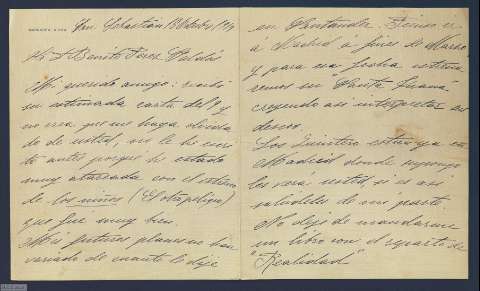 San Sebastián 13 Octubre, 19
Sr D Benito Pérez Galdós
Mi querido amigo: recibí
su estimada carta del 9 y
no crea que me haya olvida
do de usted, no le he escri
to antes porque he estado
muy atareada con el estreno
de los niños (El otra peligro)
que fué muy bien.
Mis futuros planes no han
variado de cuanto le dije
en Santander. Iremos
á Madrid á fines de Marzo
y para esa fecha estrena
remos su "Santa Juana"
creyendo así interpretar sus
deseos.
Los Quintero están ya en
Madrid donde supongo
les verá usted, si es así
salúdeles de mi parte.
No deje de mandarme
un libro con el reparto de
"Realidad"